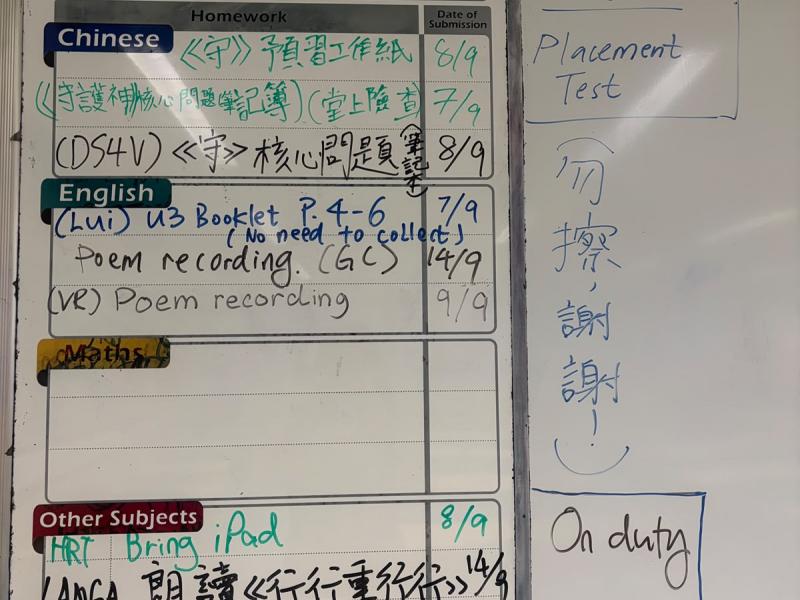 Homework
Date of Submission
Chinese
《守》預習工作紙 8/9
《守護神》核心問題(筆記簿)(堂上檢查) 7/9
(DS4V)《守》核心問題(筆記本) 8/9
English
(Lui) U3 Booklet P. 4-6 7/9
(No need to collect)
Poem recording. (GC) 14/9
(VR) Poem recording 9/9
Maths
Other Subjects
HRT Bring iPad 8/9
朗讀《行行重行行》 14/9
Placement
Test
(勿擦,謝謝!)
On duty